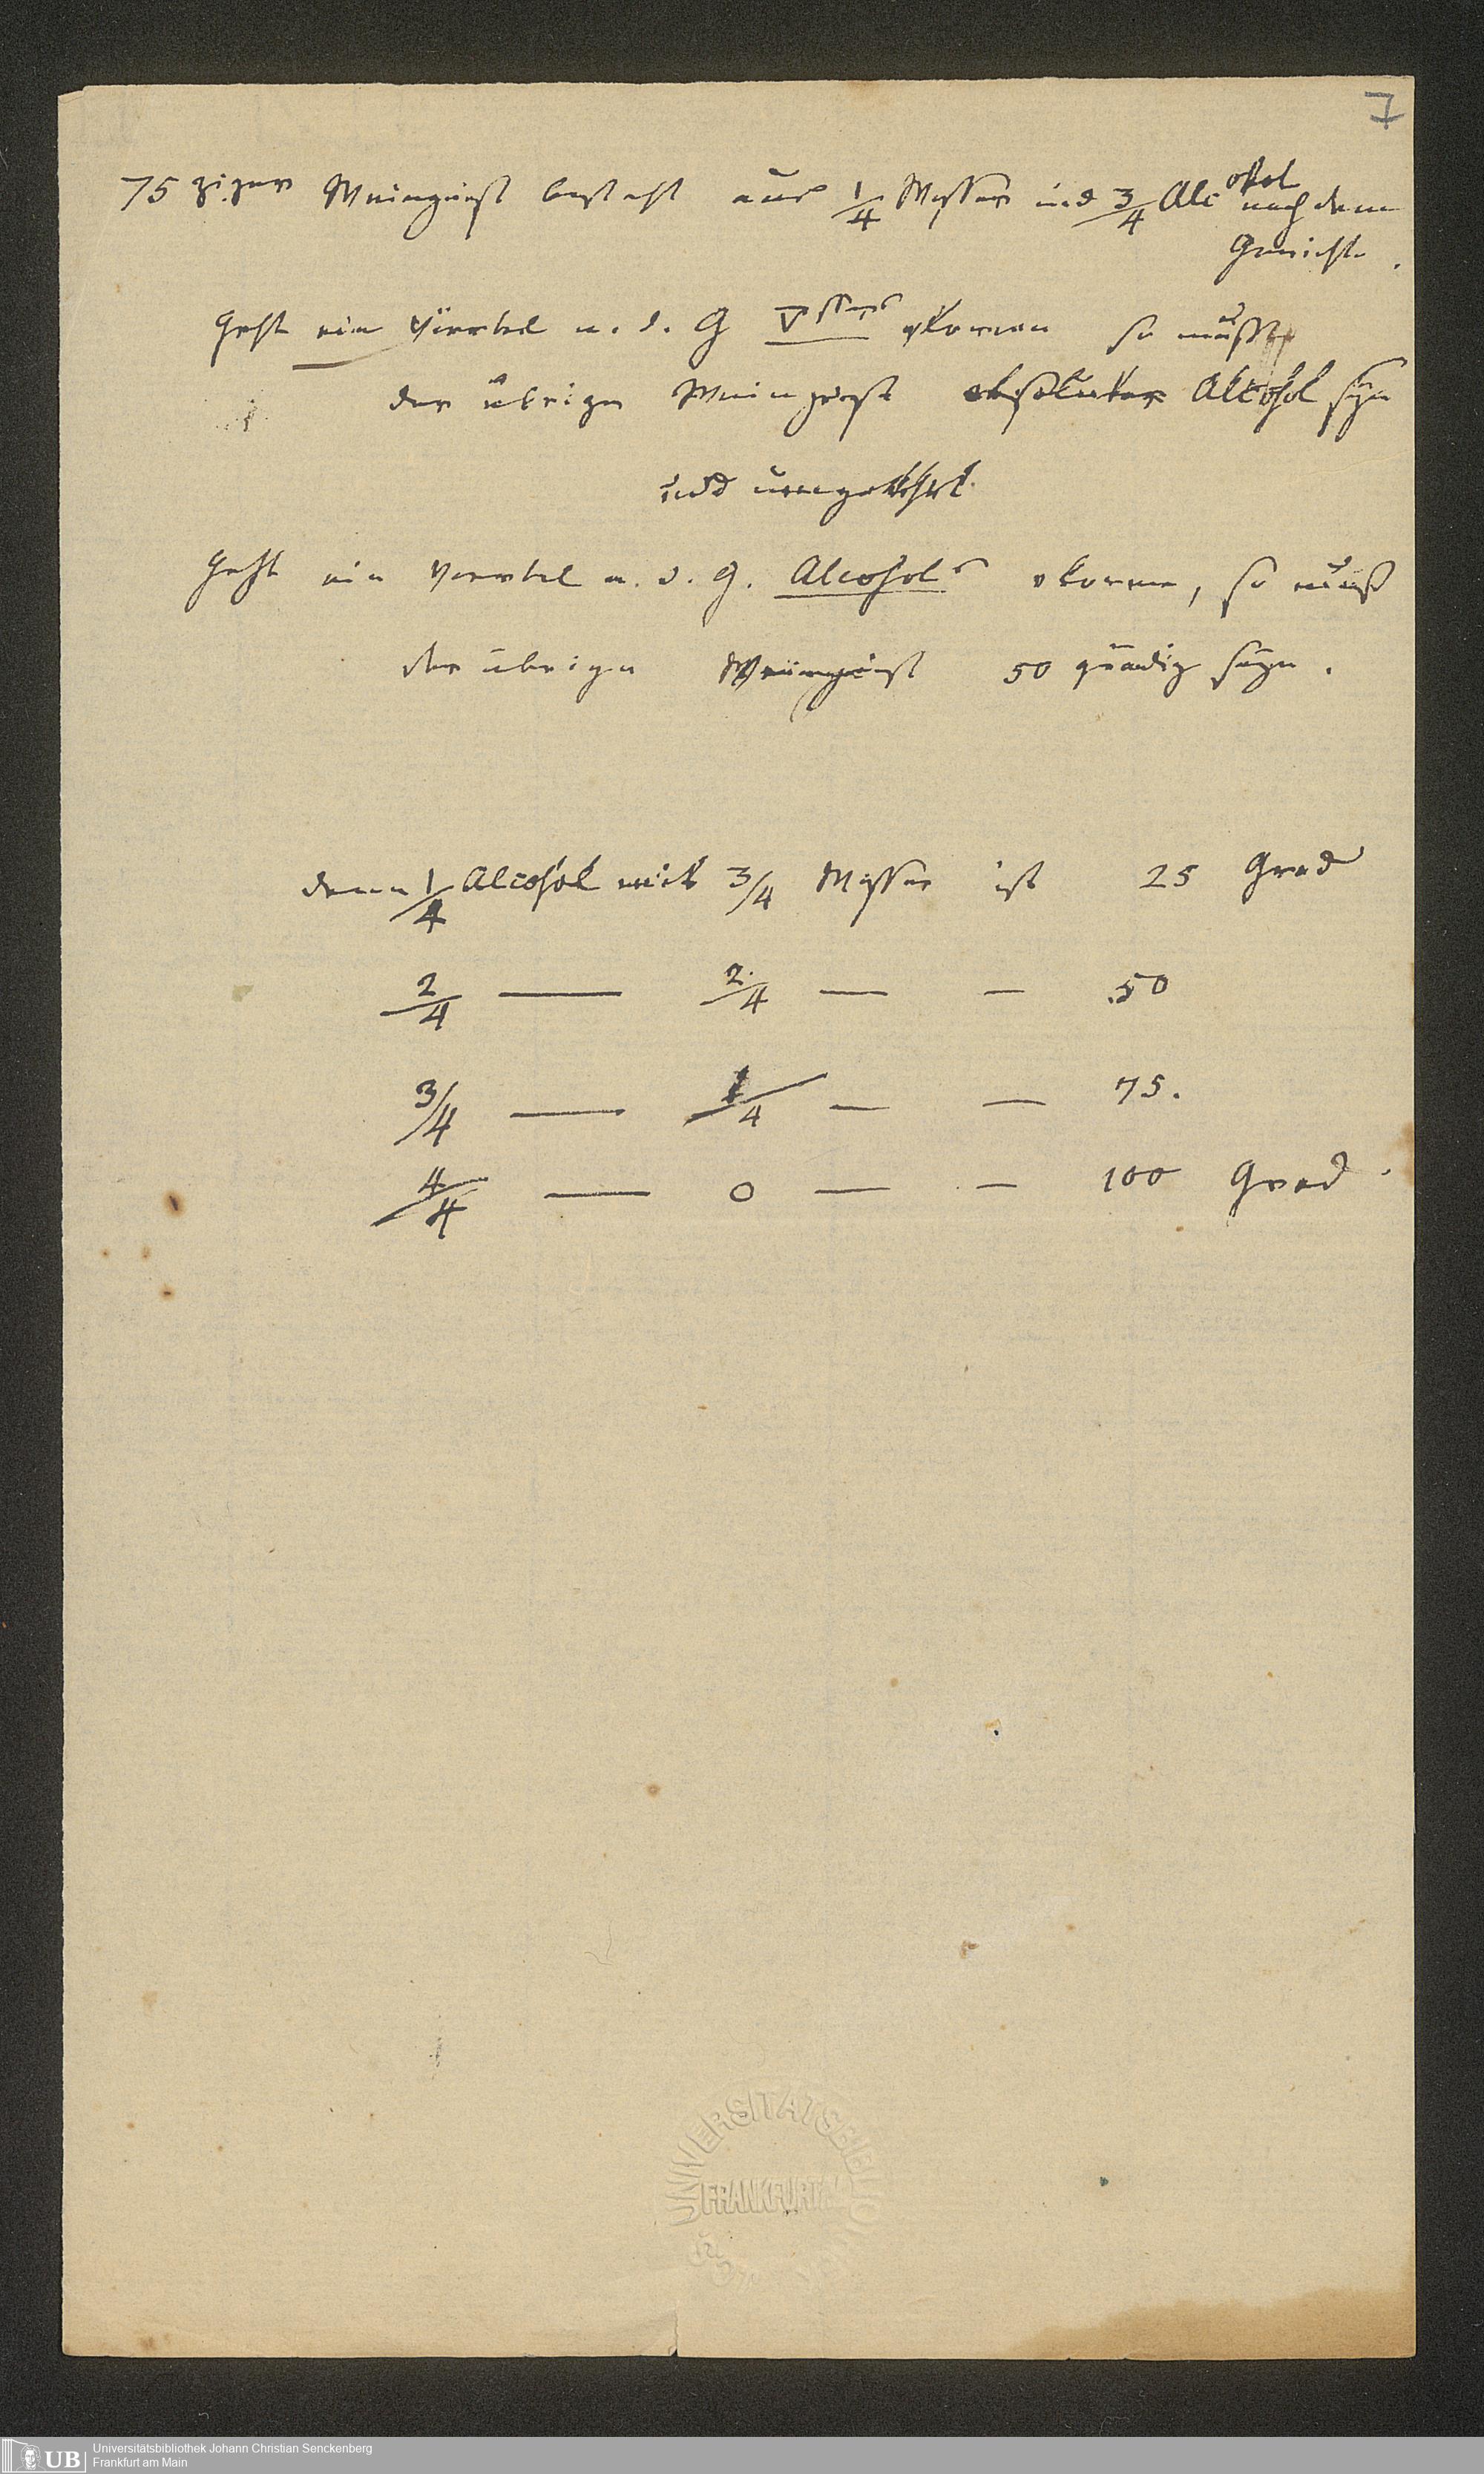 7
75 ziger Weingeist besteht aus 1/4 Wasser und 3/4 Alcohol nach dem
Gewichte.
Geht ein Viertel n. d. G ▽ssers vloren so müßte
der übrige Weingeist absoluter Alcohol seyn
und umgekehrt
Geht ein Viertel n. d. G. Alcohols vloren, so muß
der übrige Weingeist 50 grädig seyn.
denn 1/4 Alcohol mit 3/4 Wasser ist 25 Grad
2/4 — 2/4 — — 50
3/4 — 1/4 — — 75.
4/4 — 0 — — 100 Grad.
UNIVERSITÄTSBIBLIOTHEK
FRANKFURT
UB Universitätsbibliothek Johann Christian Senckenberg
Frankfurt am Main